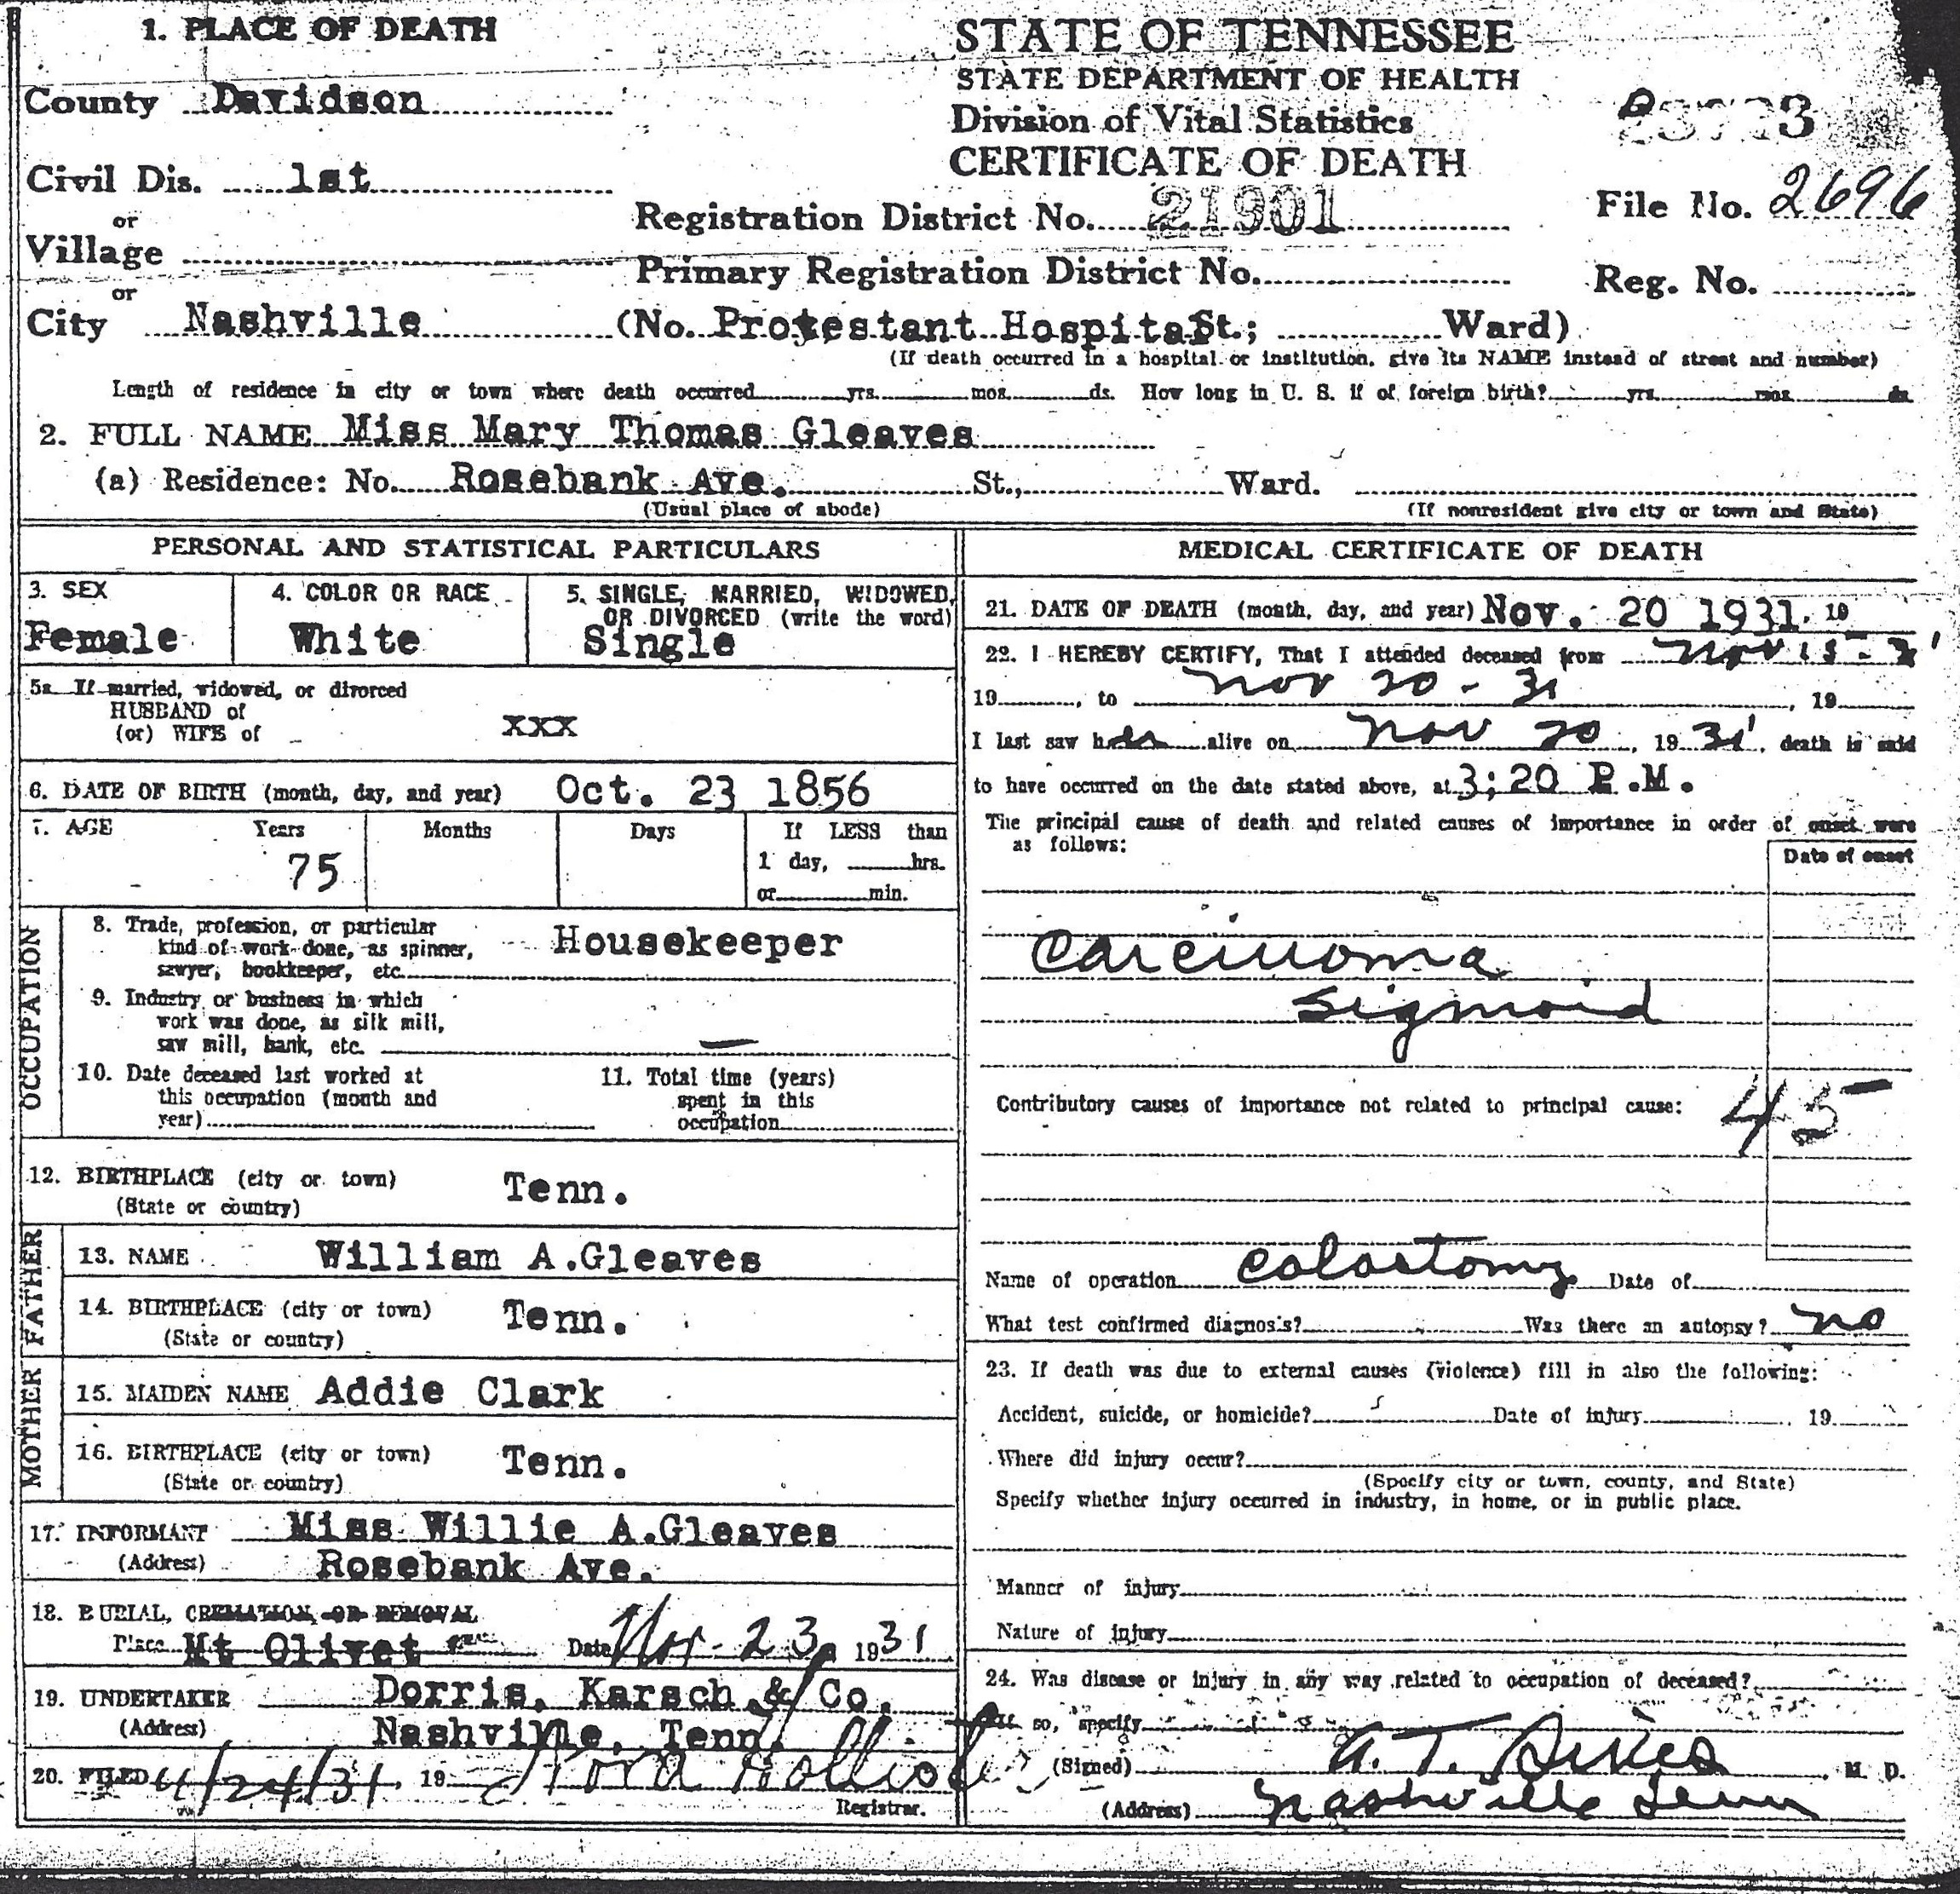 1. PLACE OF DEATH
County Davidson
Civil Dis. 1st
or
Village
or
City Nashville (No. Protestant Hospital St.; Ward)
(If death occurred in a hospital or institution, give its NAME instead of street and number)
STATE OF TENNESSEE
STATE DEPARTMENT OF HEALTH
Division of Vital Statistics
CERTIFICATE OF DEATH
Registration District No. 21901
Primary Registration District No.
File No. 2696
Reg. No.
Length of residence in city or town where death occurred yrs. mos. ds. How long in U. S. if of foreign birth? yrs. mos. ds.
2. FULL NAME Miss Mary Thomas Gleaves
(a) Residence: No. Rosebank Ave. St., Ward.
(Usual place of abode) (If nonresident give city or town and State)
PERSONAL AND STATISTICAL PARTICULARS
3. SEX
Female
4. COLOR OR RACE
White
5. SINGLE, MARRIED, WIDOWED,
OR DIVORCED (write the word)
Single
5a. If married, widowed, or divorced
HUSBAND of
(or) WIFE of xxx
6. DATE OF BIRTH (month, day, and year) Oct. 23 1856
7. AGE Years Months Days If LESS than
75 1 day, hrs.
or min.
OCCUPATION
8. Trade, profession, or particular
kind of work done, as spinner,
sawyer, bookkeeper, etc. Housekeeper
9. Industry or business in which
work was done, as silk mill,
saw mill, bank, etc. —
10. Date deceased last worked at
this occupation (month and
year)
11. Total time (years)
spent in this
occupation
12. BIRTHPLACE (city or town) Tenn.
(State or country)
FATHER
13. NAME William A.Gleaves
14. BIRTHPLACE (city or town) Tenn.
(State or country)
MOTHER
15. MAIDEN NAME Addie Clark
16. BIRTHPLACE (city or town) Tenn.
(State or country)
17. INFORMANT Miss Willie A.Gleaves
(Address) Rosebank Ave.
18. BURIAL, CREMATION, OR REMOVAL
Place Mt Olivet Date Nov - 23 1931
19. UNDERTAKER Dorris, Karsch & Co.
(Address) Nashville, Tenn.
20. FILED 11/24/31, 19 Nora Hollister
Registrar.
MEDICAL CERTIFICATE OF DEATH
21. DATE OF DEATH (month, day, and year) Nov. 20 1931. 19
22. I HEREBY CERTIFY, That I attended deceased from Nov 15 -
19 , to Nov 20 - 31 , 19
I last saw her alive on Nov 20, 1931, death is said
to have occurred on the date stated above, at 3;20 P.M.
The principal cause of death and related causes of importance in order of onset were
as follows:
Date of onset
Carcinoma
Sigmoid
Contributory causes of importance not related to principal cause:
45
Name of operation Colostomy Date of
What test confirmed diagnosis? Was there an autopsy? no
23. If death was due to external causes (violence) fill in also the following:
Accident, suicide, or homicide? Date of injury 19
Where did injury occur?
(Specify city or town, county, and State)
Specify whether injury occurred in industry, in home, or in public place.
Manner of injury
Nature of injury
24. Was disease or injury in any way related to occupation of deceased?
If so, specify
(Signed) A. T. Sikes, M. D.
(Address) Nashville Tenn